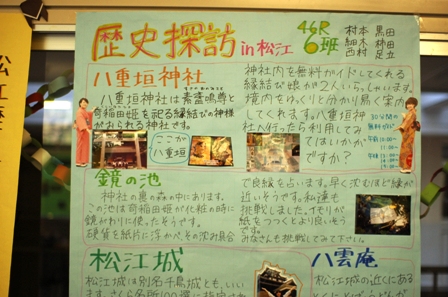 歴史探訪 in 松江
46R
6班
村本 黒田
細木 柿田
西村 足立
八重垣神社
八重垣神社は素盞嗚尊と
奇稲田姫を祀る縁結びの神様
がおられる神社です。
ここが
八重垣
神社内を無料ガイドしてくれる
縁結び娘が2人いらっしゃいます。
境内をゆっくりと分かり易く案内
してくれます。八重垣神
社へ行ったら利用してみ
てはいかが
ですか?
鏡の池
神社の奥の森の中にあります。
この池は奇稲田姫が化粧の時に
鏡がわりに使ったそうです。
硬貨を紙片に浮かべ、その沈み具合
で良縁を占います。早く沈むほど縁が
近いそうです。私達も
挑戦しました。イモリが
紙をつつくとより良いそう
です。
みなさんも挑戦してみて下さい。
松江城
松江城は別名千鳥城とも、いい
ます。さくら名所100選に指定され
八雲庵
松江城の近くにある
松江歴